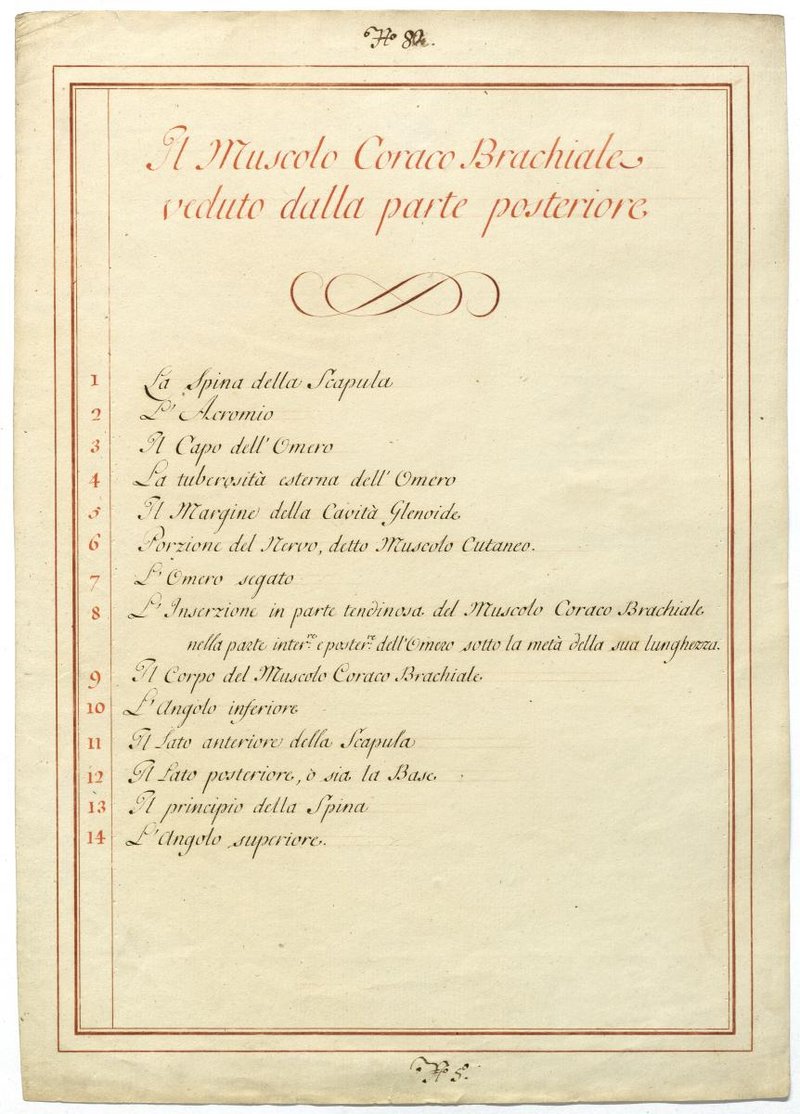 Nº 80.
Il Muscolo Coraco Brachiale
veduto dalla parte posteriore
1 La Spina della Scapula
2 L' Acromio
3 Il Capo dell' Omero
4 La tuberosità esterna dell' Omero
5 Il Margine della Cavità Glenoide
6 Porzione del Nervo, detto Muscolo Cutaneo.
7 L' Omero segato
8 L' Inserzione in parte tendinosa del Muscolo Coraco Brachiale
nella parte inter.re e poster.re dell'Omero sotto la metà della sua lunghezza.
9 Il Corpo del Muscolo Coraco Brachiale
10 L' Angolo inferiore
11 Il Lato anteriore della Scapula
12 Il Lato posteriore, ò sia la Base
13 Il principio della Spina
14 L' Angolo superiore.
Nº 5.